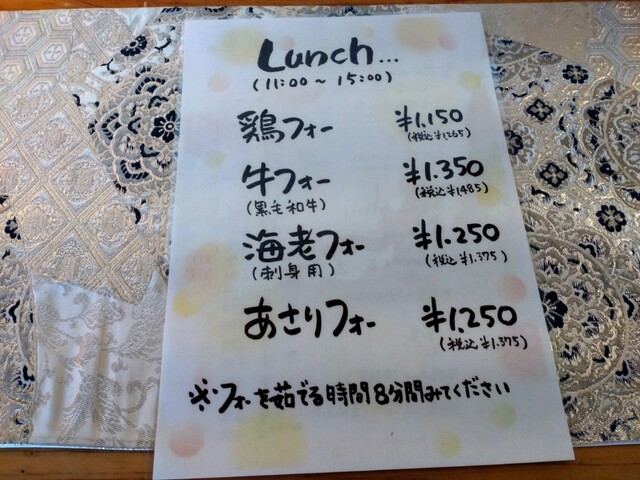 Lunch...
(11:00～15:00)
鶏フォー ¥1,150
(税込¥1,265)
牛フォー ¥1.350
(黒毛和牛) (税込¥1,485)
海老フォー ¥1.250
(刺身用) (税込¥1.375)
あさりフォー ¥1,250
(税込¥1.375)
※フォーを茹でる時間8分間みてください